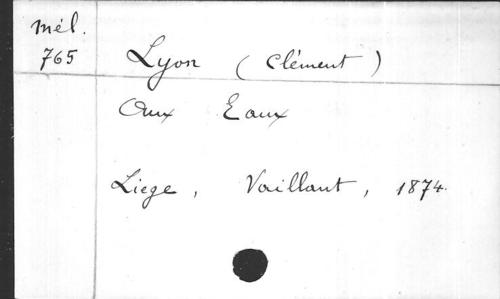 Mél.
765
Lyon (Clément)
Aux Eaux
Liege, Vaillant, 1874.